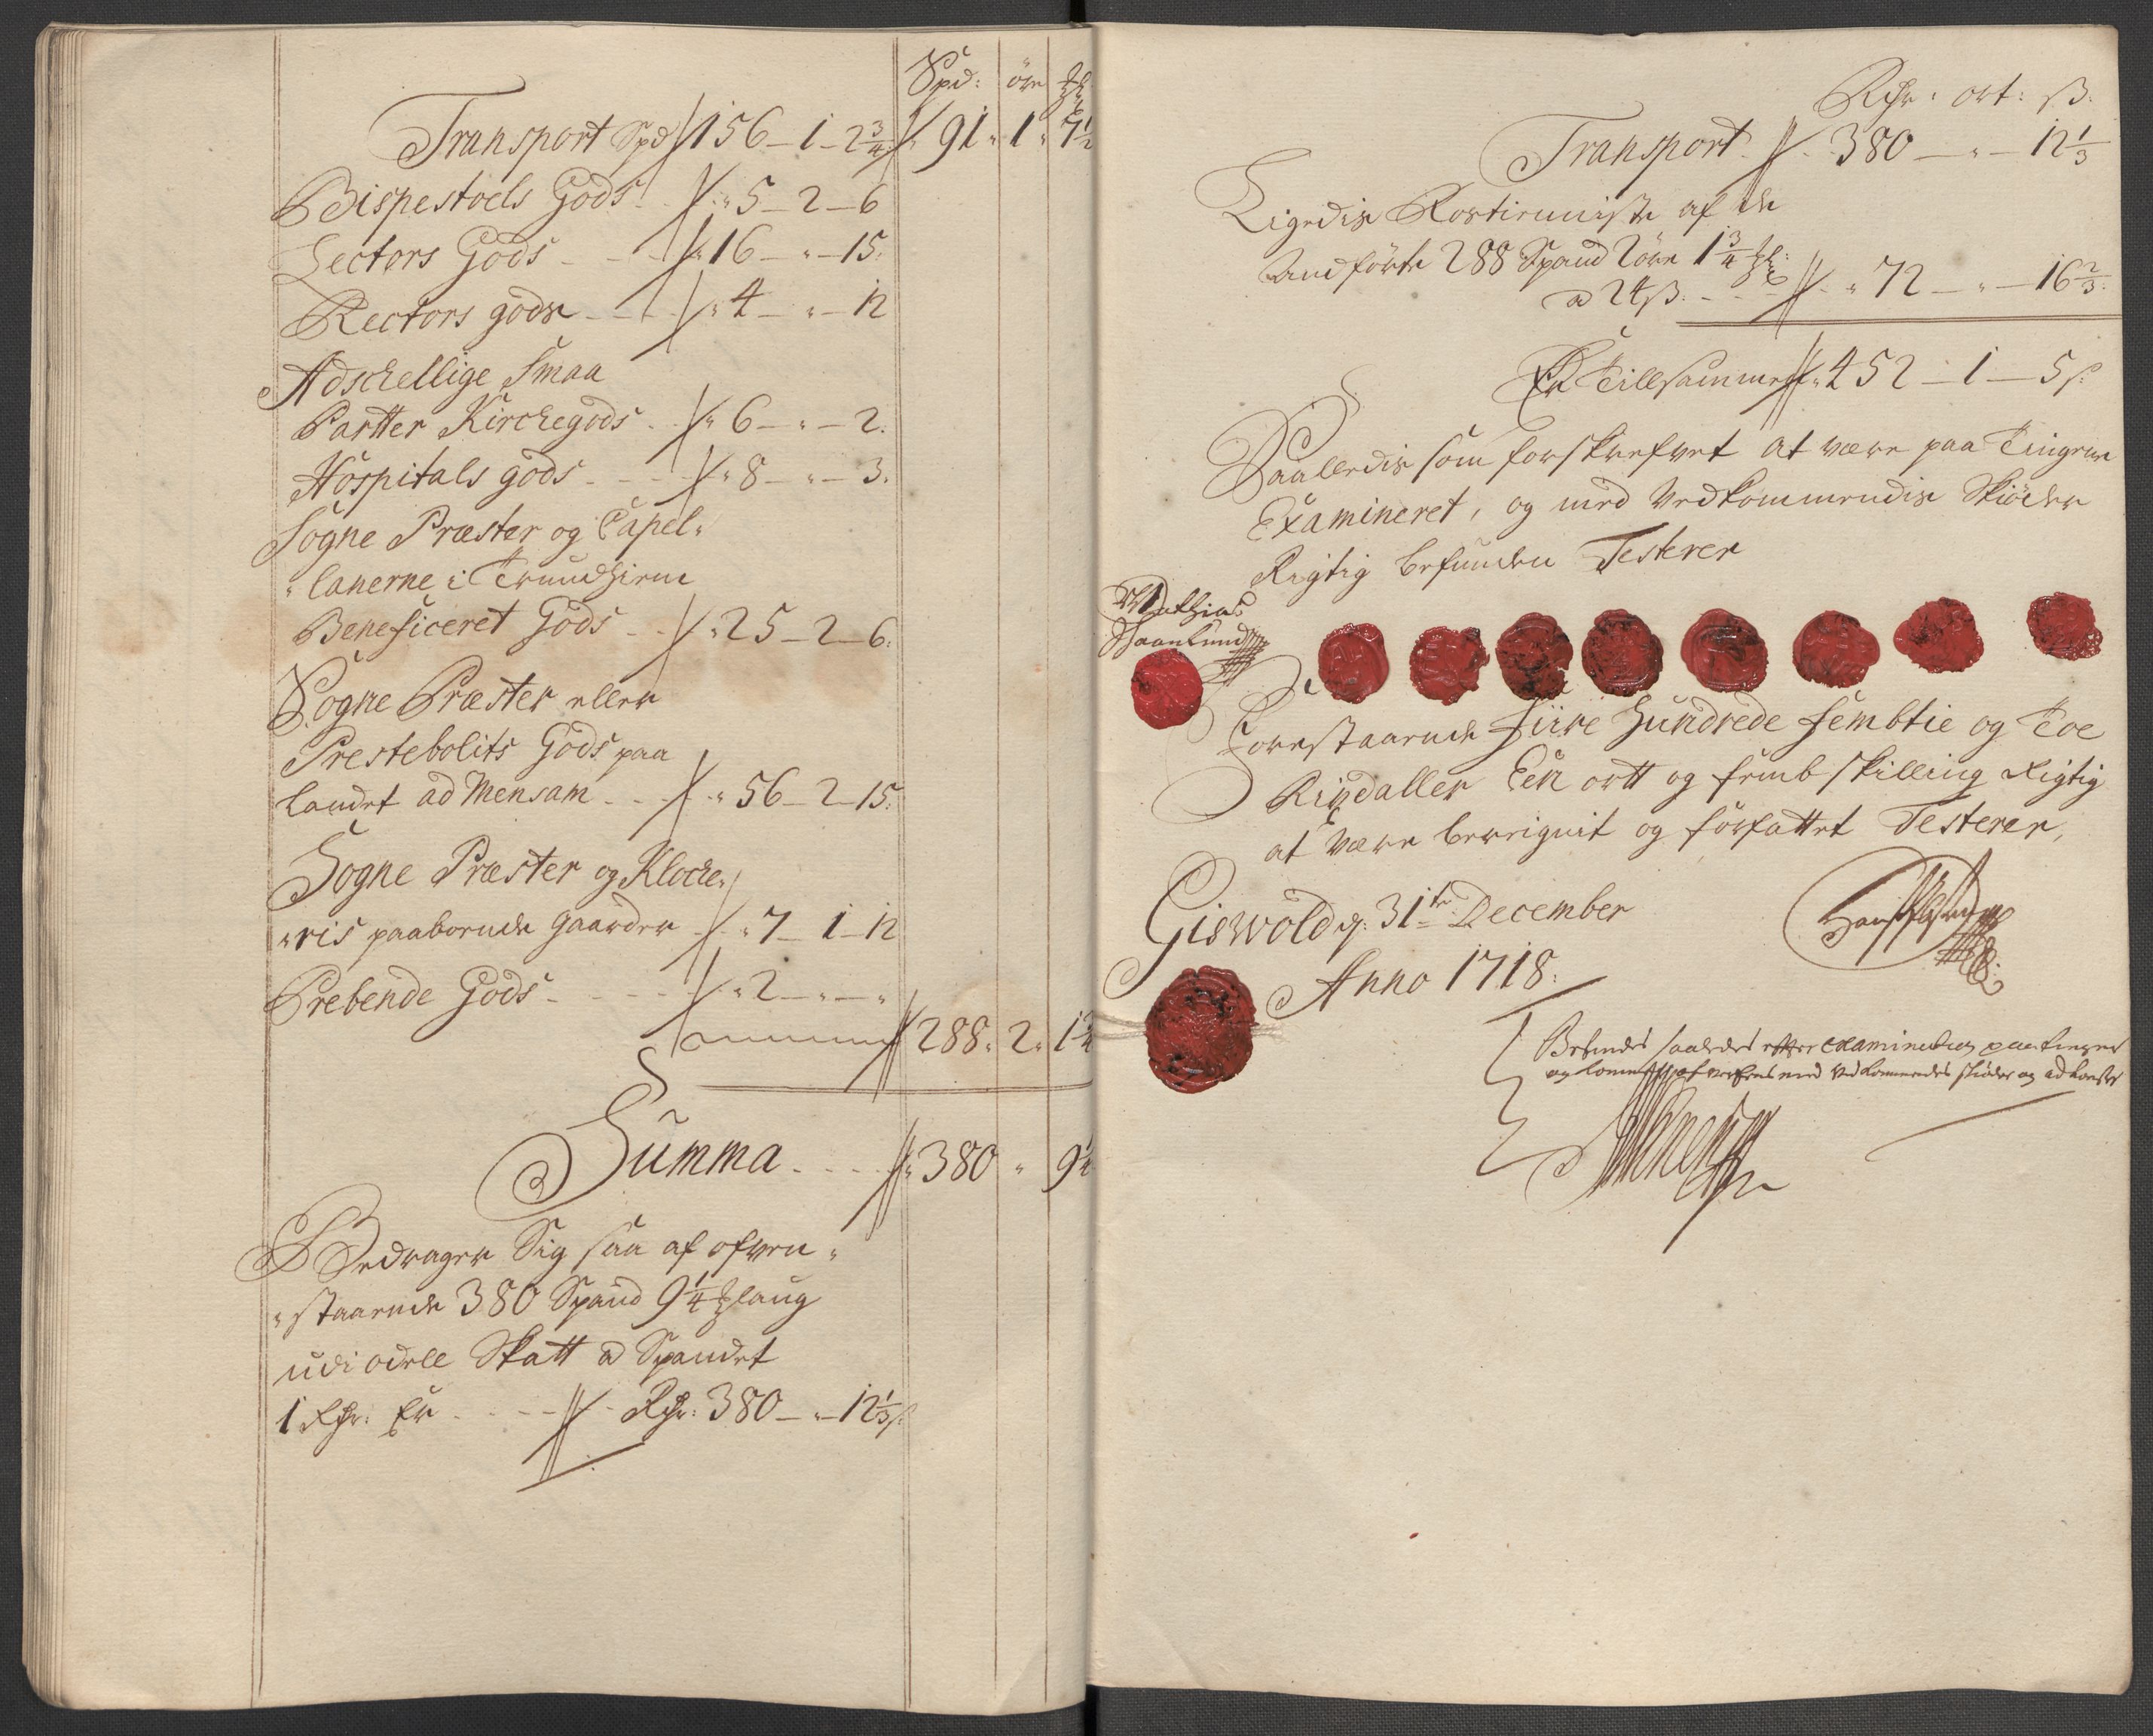 Spd: öre ℔l
Transport Spd 156 – 1 – 2¾ 91 " 1 " 7½
Bispestoels Gods " 5 – 2 – 6
Lectors Gods 16 – " – 15.
Rectors gods " 4 – " – 12
Adschellige Smaa
Partter Kirchegods " 6 – " – 2.
Hospitals gods " 8 – " – 3.
Sogne Præster og Capel-
lanerne i Trundhiem
Beneficeret Gods " 25 – 2 – 6.
Sogne Præster eller
Prestebolits Gods paa
landet ad Mensam " 56 – 2 – 15.
Sogne Præster og Klocke-
ris paaboende gaarder " 7 – 1 – 12
Prebende Gods " 2 – " – "
288 " 2 " 1¾
Summa 380 " 9¼
Bedrager Sig saa af ofven-
staaende 380 Spand 9¼ ℔laug
udi odell Skatt a Spandet
1 Rdr: Er Rdr: 380 – " – 12⅓ s
Rdr: ort: ß.
Transport 380 – " – 12⅓
Ligedis af de
Andförte 288 Spand 2 öre 1¾ ℔l:
a 24 ß. " 72 – " – 16⅔.
Er Tillsammen 452 – 1 – 5 s
Saalledis som forskrefvet at være paa Tingene
Examineret, og med Vedkommendis Skiöder
Rigtig befunden Testerer
Mathias
Forestaaende Fiire Hundrede Fembtie og Toe
Rixdaller Een ortt og femb skilling Rigtig
at være beregnit og forfattet Testerer,
Giswold d: 31te December
Anno 1718.
Befindes saaledes efter Examination paa tinget
og med Vedkommendes skiöder og adkomster